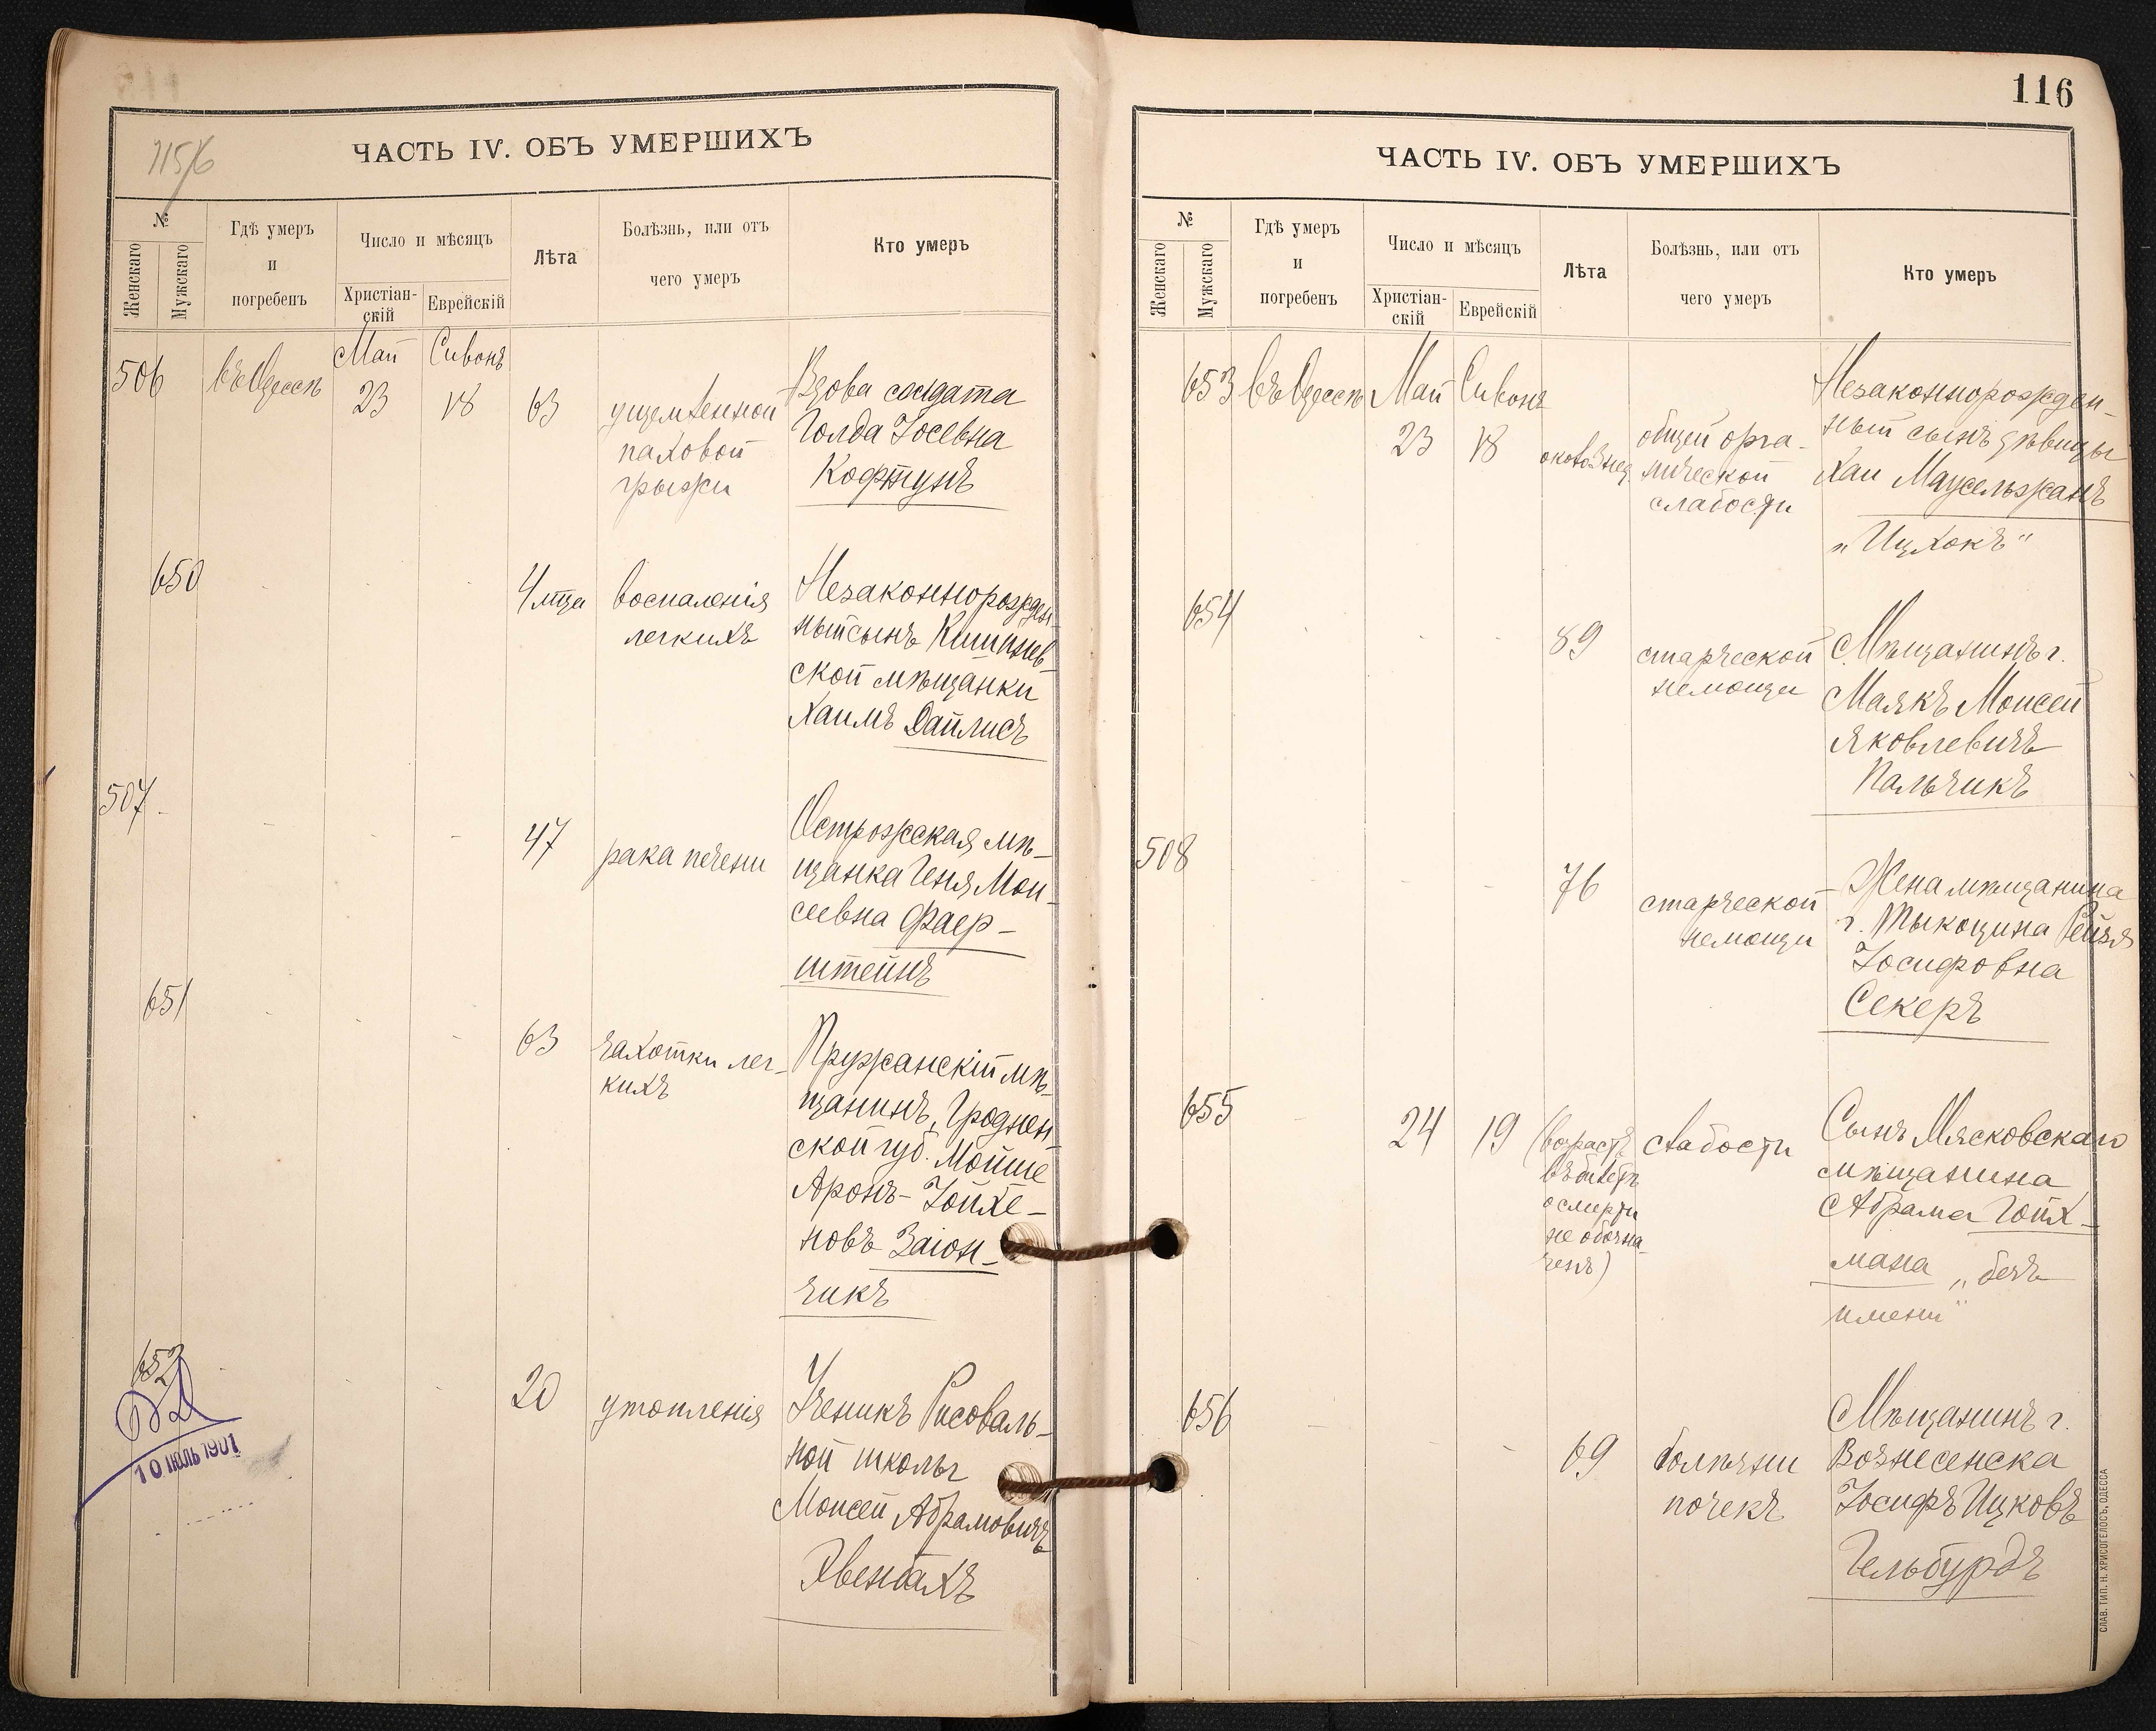 115/6
ЧАСТЬ IV. ОБЪ УМЕРШИХЪ
№
Женскаго
Мужскаго
Гдѣ умеръ
и
погребенъ
Число и мѣсяцъ
Христіан-
скій
Еврейскій
Лѣта
Болѣзнь, или отъ
чего умеръ
Кто умеръ
506
въ Одессѣ
Май
23
Сивонъ
18
63
ущемленной
паховой
грыжи
Вдова солдата
Голда Іосевна
Кофтунъ
650
4 мца
воспаленія
легкихъ
Незаконнорожден-
ный сынъ Кишинев-
ской мѣщанки
Хаимъ Дайлисъ
507
47
рака печени
Острожская мѣ-
щанка Геня Мои-
сеевна Фаер-
штейнъ
651
63
чахотки лег-
кихъ
Пружанскій мѣ-
щанинъ, Гроднен
ской губ. Мойше
Аронъ-Іойхе-
новъ Заіон-
чикъ
652
10 ІЮЛЬ 1901
20
утопленія
Ученикъ Рисоваль-
ной школы
Моисей Абрамовичъ
Явенбахъ
116
ЧАСТЬ IV. ОБЪ УМЕРШИХЪ
№
Женскаго
Мужскаго
Гдѣ умеръ
и
погребенъ
Число и мѣсяцъ
Христіан-
скій
Еврейскій
Лѣта
Болѣзнь, или отъ
чего умеръ
Кто умеръ
653
въ Одессѣ
Май
23
Сивонъ
18
около нед.
общей орга-
нической
слабости
Незаконнорожден-
ный сынъ дѣвицы
Хаи Маусельжанъ
„Ицхокъ"
654
89
старческой
немощи
Мѣщанинъ г.
Маякъ Моисей
Яковлевичъ
Пальчикъ
508
76
старческой
немощи
Жена мѣщанина
г. Тыкоцина Рейзя
Іосифовна
Секеръ
655
24
19
(возрастъ
въ билетѣ
о смерти
не обозна-
ченъ)
слабости
Сынъ Мясковскаго
мѣщанина
Абрама Гойх-
мана „безъ
имени"
656
69
болѣзни
почекъ
Мѣщанинъ г.
Вознесенска
Іосифъ Ицковъ
Гельбурдъ
СЛАВ. ТИП. Н. ХРИСОГЕЛОСЪ, ОДЕССА